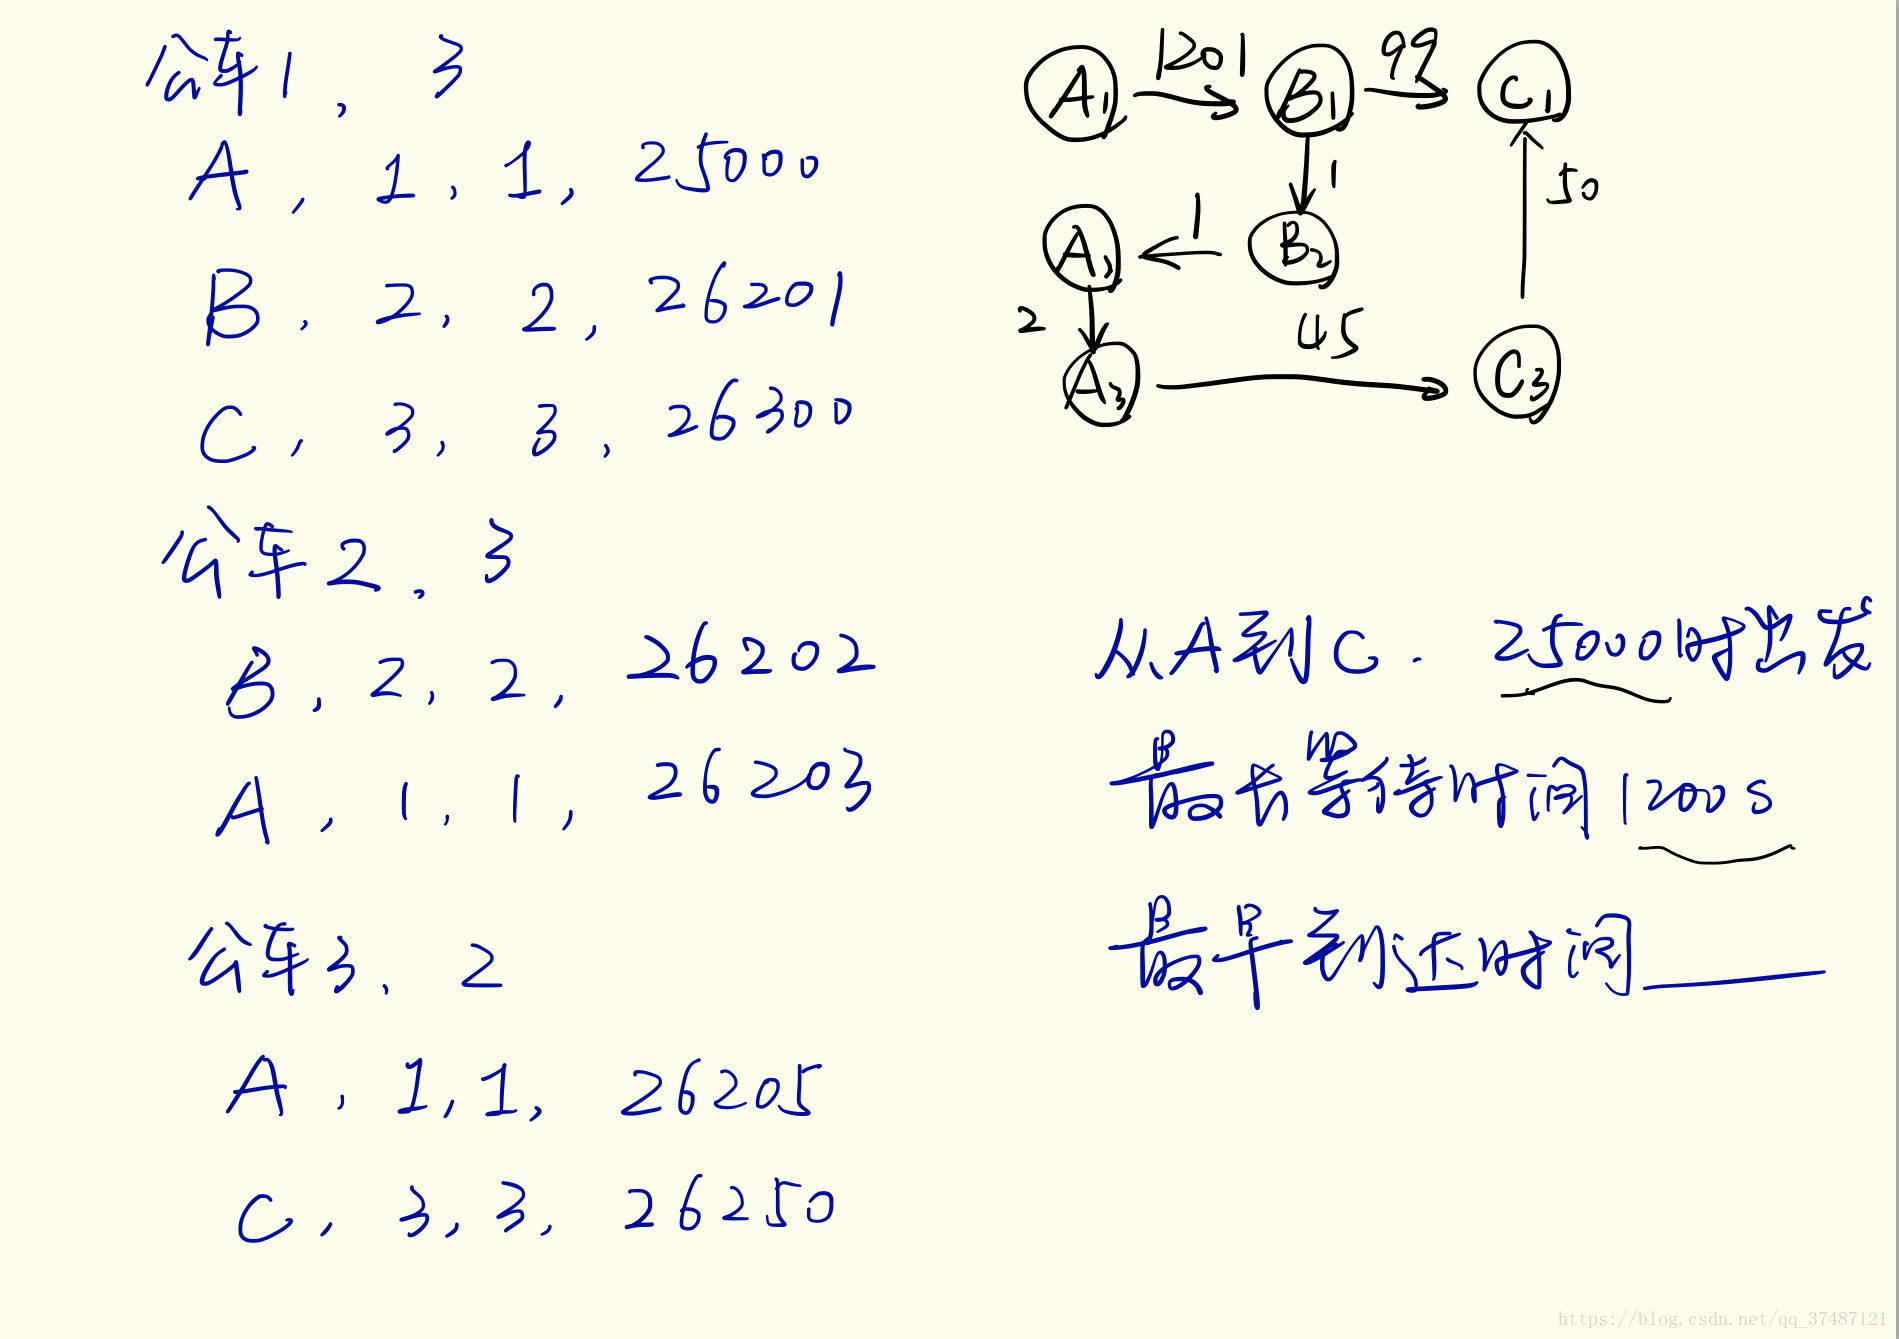 公车1, 3
A, 1, 1, 25000
B, 2, 2, 26201
C, 3, 3, 26300
公车2, 3
B, 2, 2, 26202
A, 1, 1, 26203
公车3, 2
A, 1, 1, 26205
C, 3, 3, 26250
A1 1201 B1 99 C1
1 50
A2 1 B2
2 45
A3 C3
从A到C. 25000时出发
最长等待时间1200s
最早到达时间
https://blog.csdn.net/qq_37487121